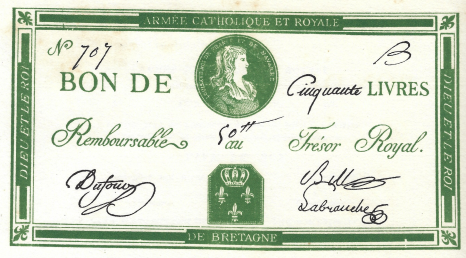 ARMÉE CATHOLIQUE ET ROYALE
DIEU ET LE ROI
DIEU ET LE ROI
No 707
B
BON DE Cinquante LIVRES
50tt
Remboursable au Trésor Royal.
Dufour
Labranche
DE BRETAGNE